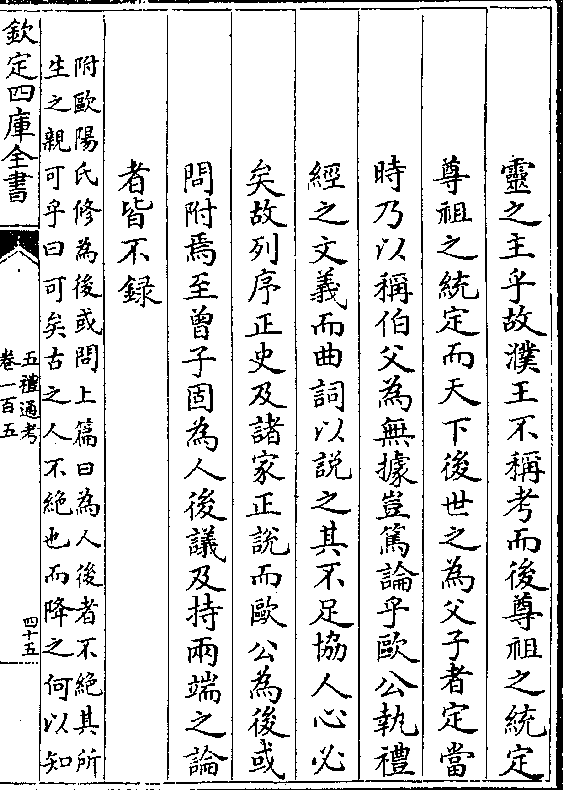 靈之主乎故濮王不稱考而後尊祖之統定
尊祖之統定而天下後世之為父子者定當
時乃以稱伯父為無據豈篤論乎歐公執禮
經之文義而曲詞以說之其不足協人心必
矣故列序正史及諸家正說而歐公為後或
問附焉至曾子固為人後議及持兩端之論
者皆不録
附歐陽氏修為後或問上篇曰為人後者不絶其所
生之親可乎曰可矣古之人不絶也而降之何以知
欽定四庫全書
五禮通考
卷一百五
四十五